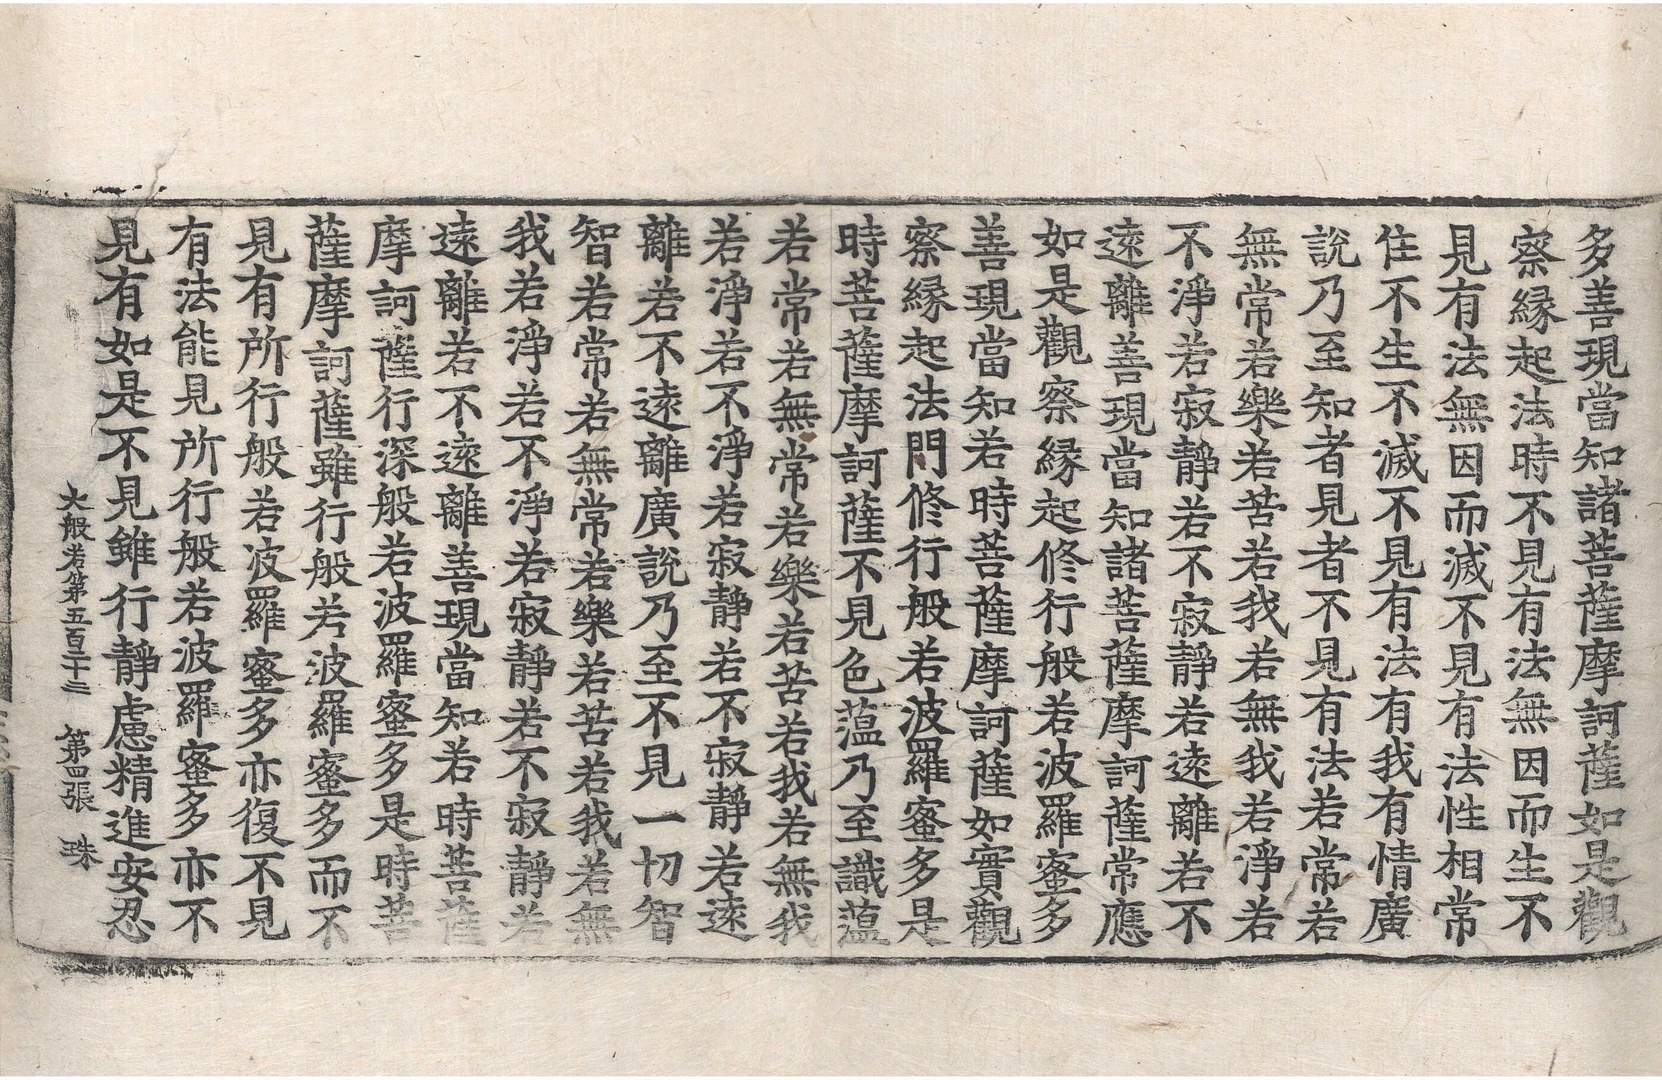 多善現當知諸菩薩摩訶薩如是觀
察縁起法時不見有法無因而生不
見有法無因而滅不見有法性相常
住不生不滅不見有法有我有情廣
說乃至知者見者不見有法若常若
無常若樂若苦若我若無我若淨若
不淨若寂靜若不寂靜若遠離若不
遠離善現當知諸菩薩摩訶薩常應
如是觀察縁起修行般若波羅蜜多
善現當知若時菩薩摩訶薩如實觀
察縁起法門修行般若波羅蜜多是
時菩薩摩訶薩不見色蕰乃至識蕰
若常若無常若樂若苦若我若無我
若淨若不淨若寂靜若不寂靜若遠
離若不遠離廣說乃至不見一切智
智若常若無常若樂若苦若我若無
我若淨若不淨若寂靜若不寂靜若
遠離若不遠離善現當知若時菩薩
摩訶薩行深般若波羅蜜多是時菩
薩摩訶薩雖行般若波羅蜜多而不
見有所行般若波羅蜜多亦復不見
有法能見所行般若波羅蜜多亦不
見有如是不見雖行靜慮精進安忍
大般若第五百二十三 第四張 珠